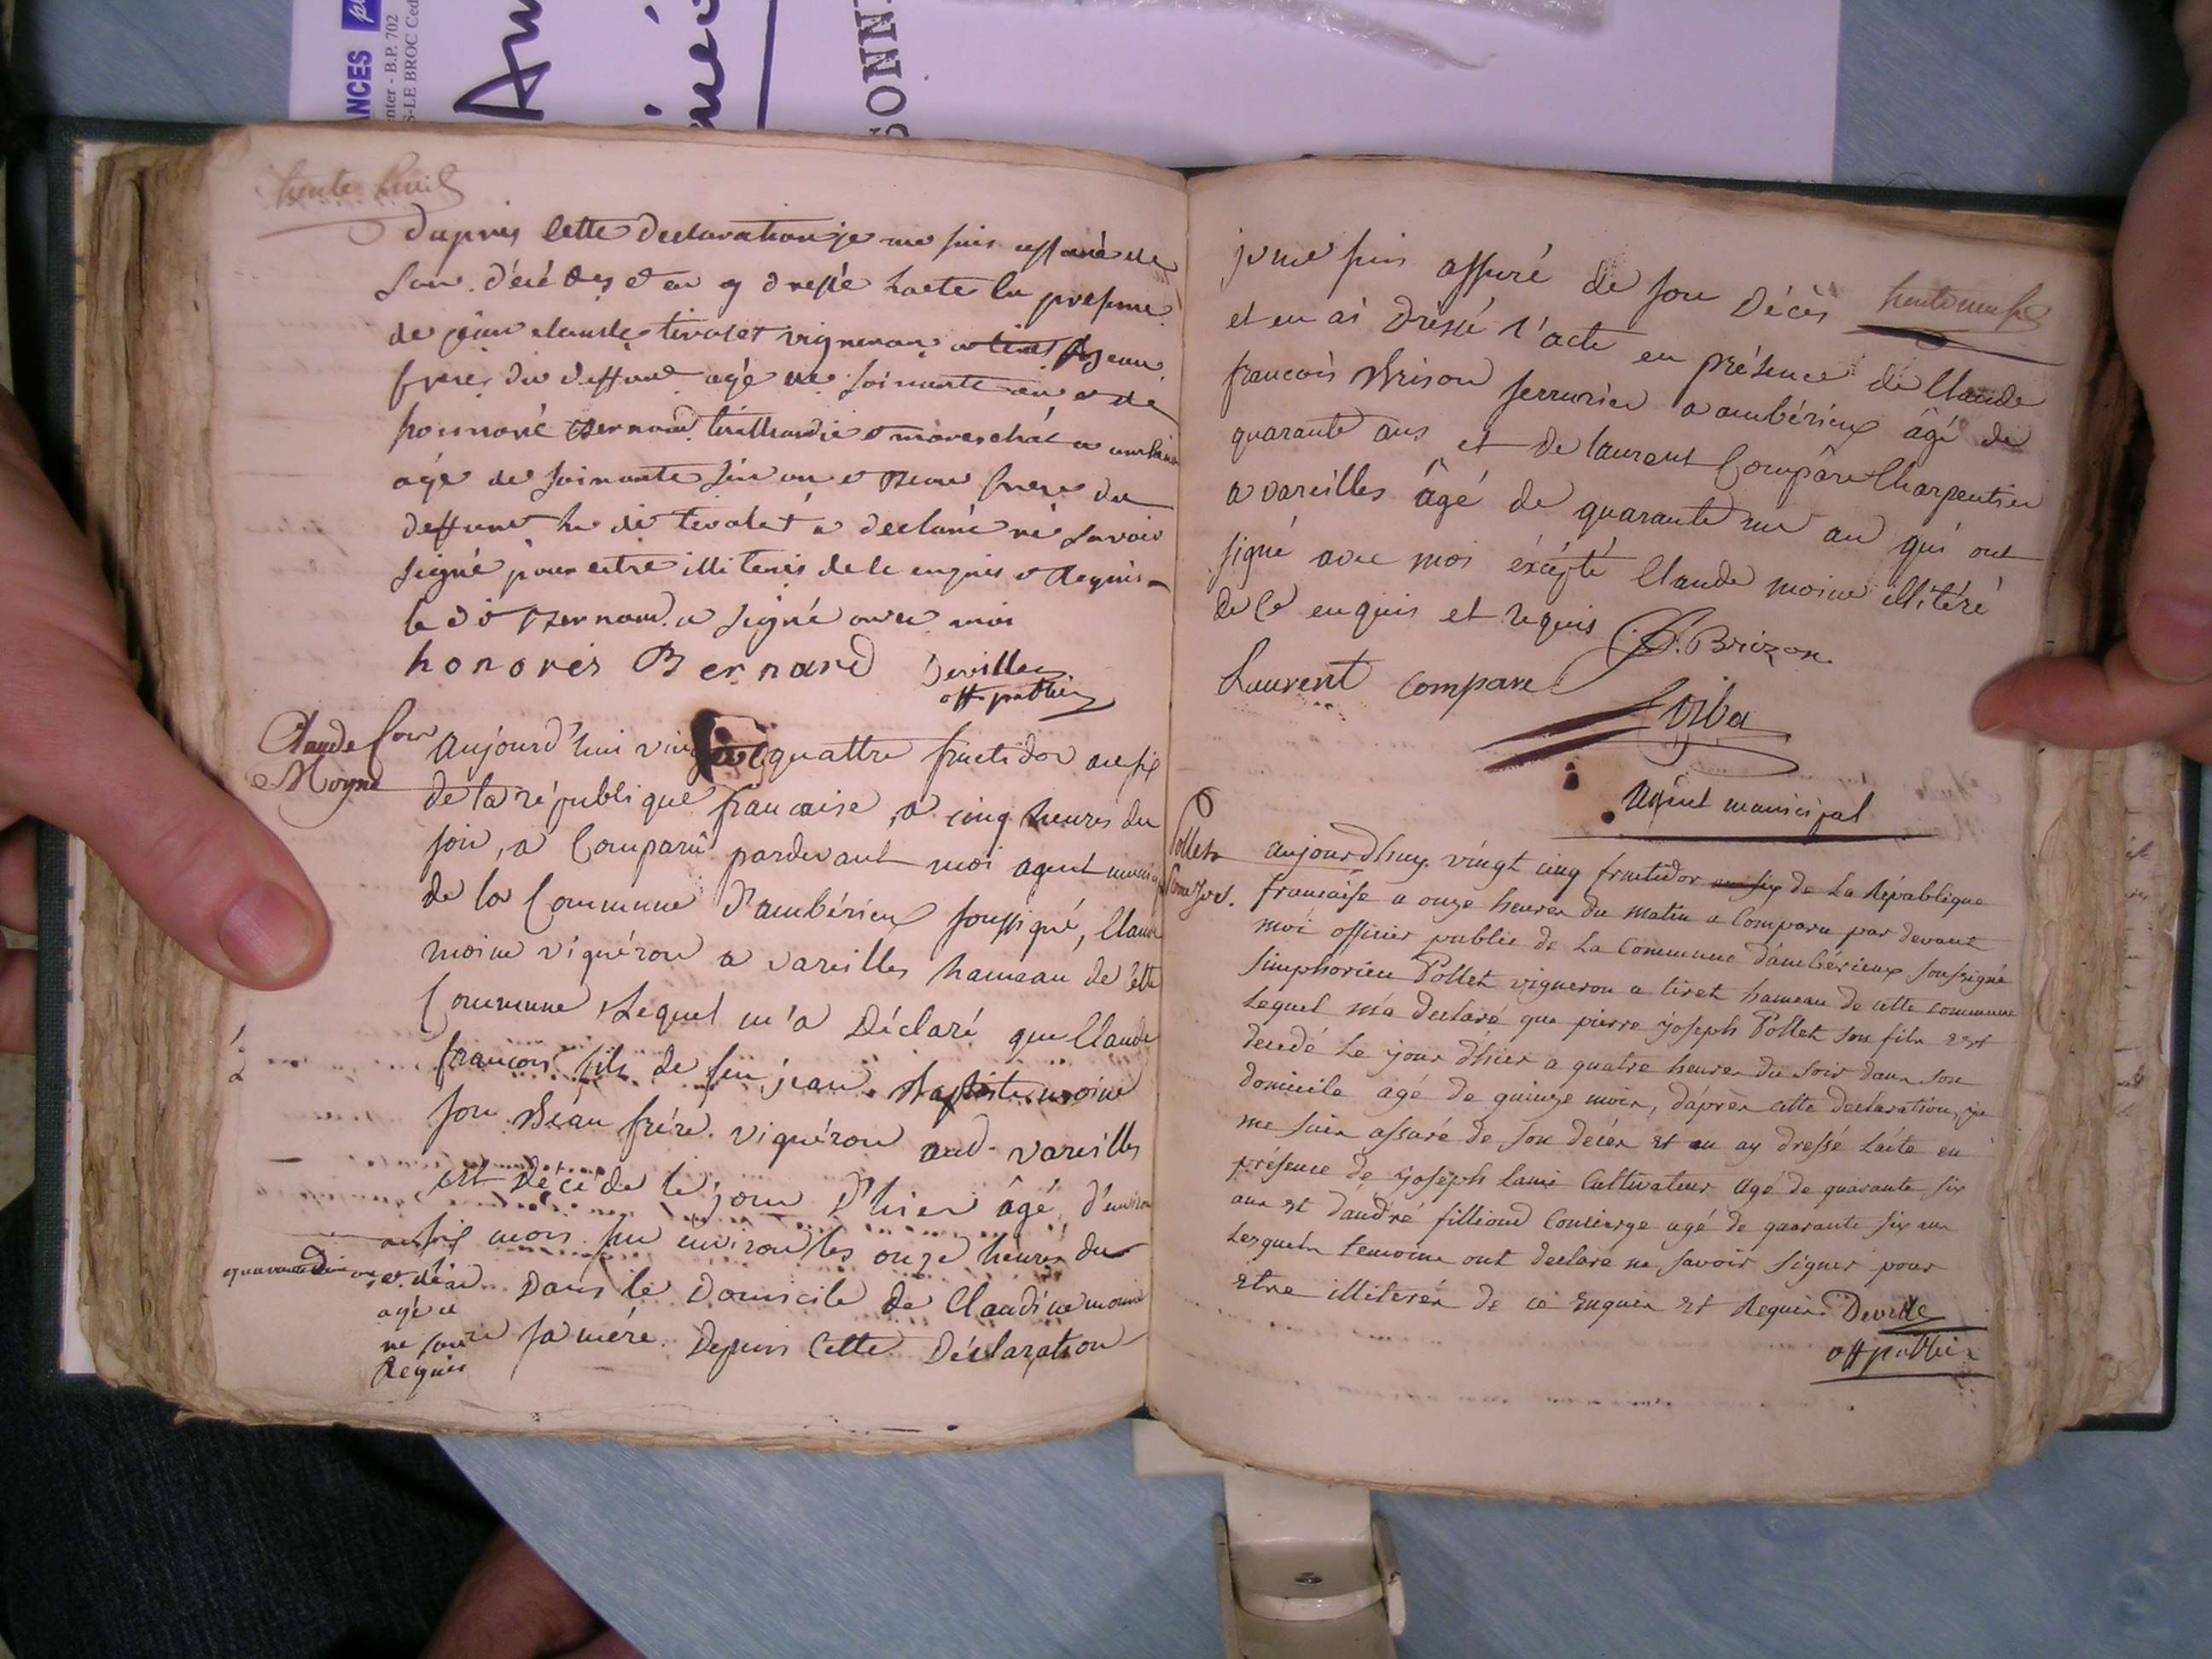 ANCES
nter - B.P. 702
S-LE BROC Ced
SONN
trente huit
d'apres cette declaration je me suis assuré de
son décé des et en ay dressé lacte en presence
de jean claude tivolet vigneron a tiret
frere du deffunt agé de soixante an et de
honnoré Bernard taillandie et marechal a
agé de soixante six an et Beau frere du
deffunt le dit tivolet a declaré né savoir
signé pour estre illiterés de ce enquis et Requis
le dit Bernard a signé avec moi
honorés Bernard Deville
off public
Claude fois
Moyne
Aujourd'hui vingt quattre fructidor an six
de la république francaise, a cinq heures du
soir, a Comparû pardevant moi agent
de la Commune d'ambérieux soussigné, Claude
moine vigneron a vareilles hameau de cette
Commune, Lequel m'a Déclaré que Claude
francois fils de feu jean Baptiste moine
son Béau frére vigneron aud. vareilles
est décédé le jour d'hier âgé d'environ
mois sur environ les onze heures du
Dans le Domicile de Claudine moine
agé
ne
sa mére. Depuis Cette Déclaration
Requis
trente neuf
je me suis assuré de son Décès
et en ai Dressé l'acte en présence de Claude
francois Brison serrurier a ambérieux âgé de
quarante ans et de laurent Compâre Charpentier
a vareilles âgé de quarante un an qui ont
signé avec moi éxcépté Claude moine illitéré
de Ce enquis et requis C.F. Brizon
Laurent compare
Agent municipal
Pollet
aujourdhuy vingt cinq fructidor an six de La République
francaise a onze heures du matin a Comparu par devant
moi officier public de La Commune d'ambérieux soussigné
simphorien Pollet vigneron a tiret hameau de cette commune
Lequel m'a declaré que pierre joseph Pollet son fils est
decedé Le jour d'hier a quatre heures du soir dans son
domicile agé de quinze mois, d'après cette declaration, je
me suis assuré de son decés et en ay dressé L'acte en
présence de joseph Lami Cultivateur agé de quarante six
ans et d'andré fillioud Concierge agé de quarante six ans
Lesquels temoins ont declaré ne savoir signer pour
Etre illiterés de ce Enquis et Requis Deville
off public